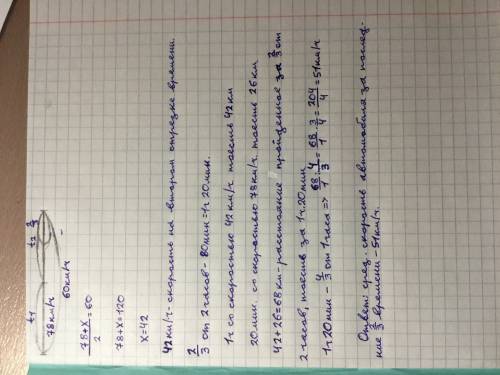 t1 t2 2/3
78км/ч
60км/ч
(78+x)/2=60
78+x=120
x=42
42км/ч-скорость на втором отрезке времени.
2/3 от 2 часов-80мин=1ч 20мин.
1ч со скоростью 42км/ч тоесть 42км
20мин. со скоростью 78км/ч. тоесть 26км
42+26=68км-расстояние пройденное за 2/3 от
2 часов, тоесть за 1ч.20мин
1ч 20мин - 4/3 от 1 часа => 68/1 : 4/3 = 68/1 · 3/4 = 204/4 = 51км/ч
Ответ: сред. скорость автомобиля за послед-
ние 2/3 времени - 51км/ч.